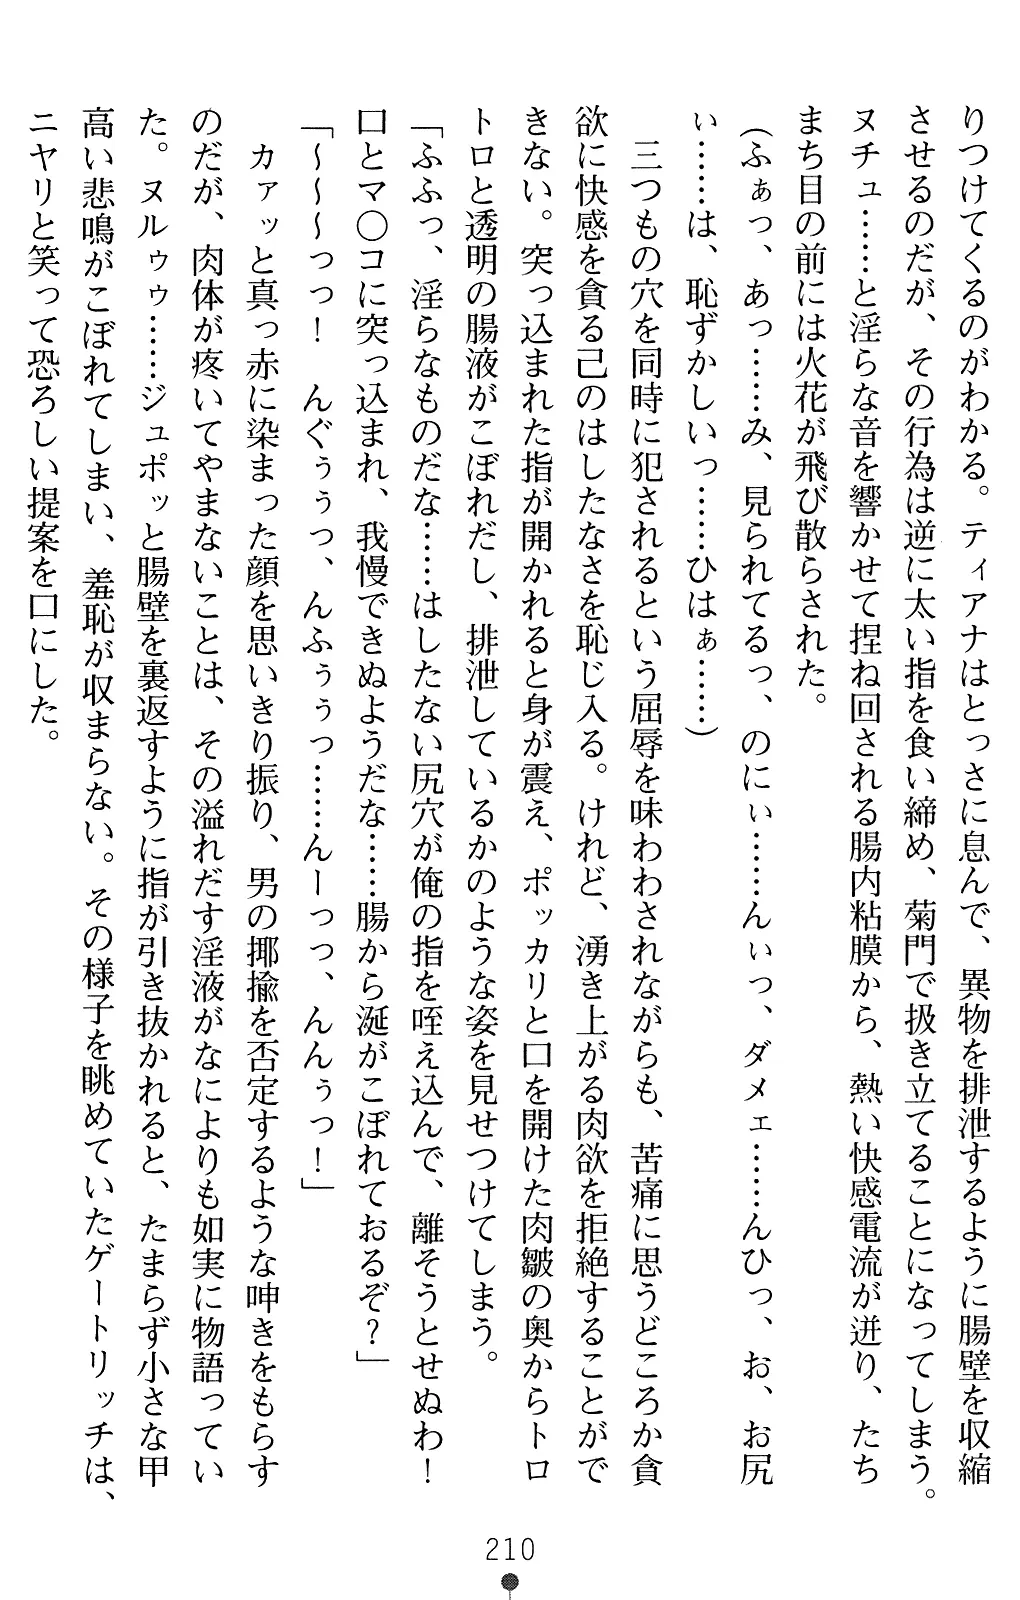 りつけてくるのがわかる。ティアナはとっさに息んで、異物を排泄するように腸壁を収縮
させるのだが、その行為は逆に太い指を食い締め、菊門で扱き立てることになってしまう。
ヌチュ……と淫らな音を響かせて捏ね回される腸内粘膜から、熱い快感電流が迸り、たち
まち目の前には火花が飛び散らされた。
（ふぁっ、あっ……み、見られてるっ、のにぃ……んぃっ、ダメェ……んひっ、お、お尻
ぃ……は、恥ずかしいっ……ひはぁ……）
三つもの穴を同時に犯されるという屈辱を味わわされながらも、苦痛に思うどころか貪
欲に快感を貪る己のはしたなさを恥じ入る。けれど、湧き上がる肉欲を拒絶することがで
きない。突っ込まれた指が開かれると身が震え、ポッカリと口を開けた肉皺の奥からトロ
トロと透明の腸液がこぼれだし、排泄しているかのような姿を見せつけてしまう。
「ふふっ、淫らなものだな……はしたない尻穴が俺の指を咥え込んで、離そうとせぬわ！
口とマ〇コに突っ込まれ、我慢できぬようだな……腸から涎がこぼれておるぞ？」
「～～～っっ！　んぐぅぅっ、んふぅぅっ……んーっっ、んんぅっ！」
カァッと真っ赤に染まった顔を思いきり振り、男の揶揄を否定するような呻きをもらす
のだが、肉体が疼いてやまないことは、その溢れだす淫液がなによりも如実に物語ってい
た。ヌルゥゥ……ジュポッと腸壁を裏返すように指が引き抜かれると、たまらず小さな甲
高い悲鳴がこぼれてしまい、羞恥が収まらない。その様子を眺めていたゲートリッチは、
ニヤリと笑って恐ろしい提案を口にした。
210